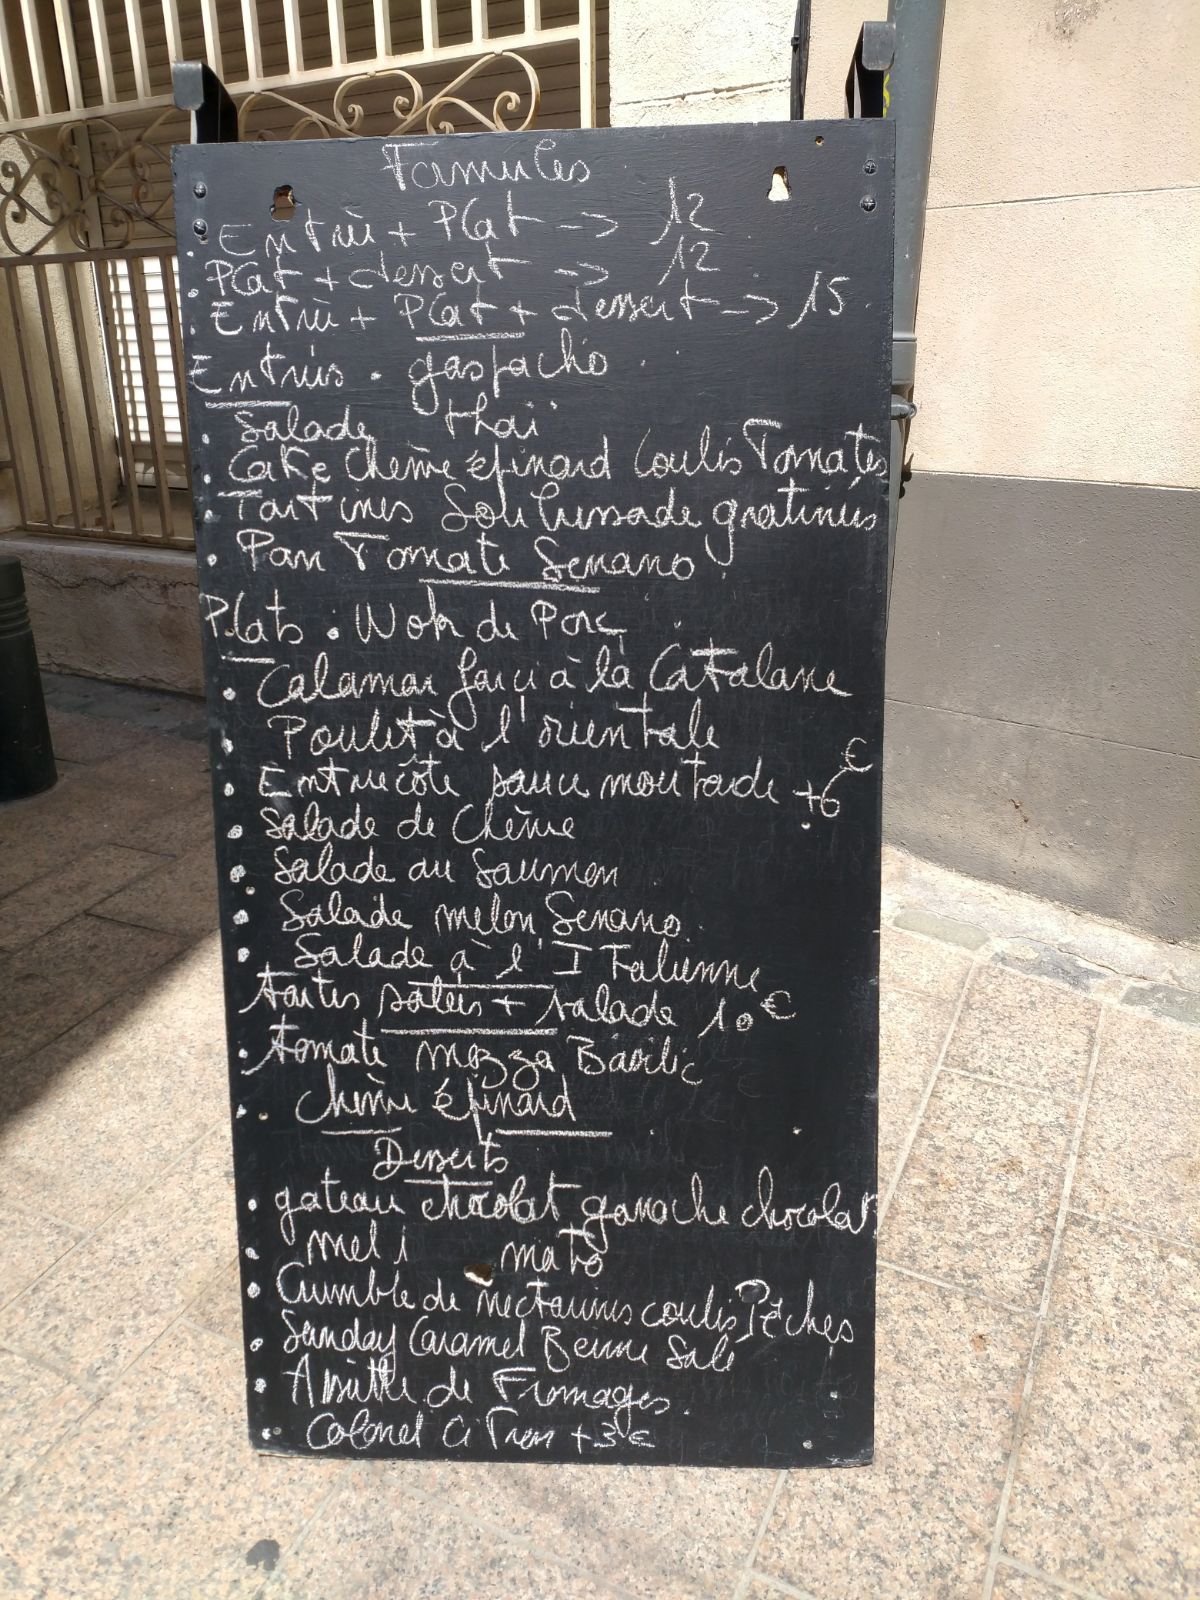 Formules
Entrée + Plat -> 12
Plat + dessert -> 12
Entrée + Plat + dessert -> 15
Entrées . gaspacho
Salade thaï
Cake Chèvre épinard Coulis Tomates
Tartines gratinées
Pan Tomate Serrano
Plats . Wok de Porc
Calamar farci à la Catalane
Poulet à l'orientale
Entrecôte sauce moutarde +6€
Salade de Chèvre
Salade au Saumon
Salade melon Serrano
Salade à l'Italienne
tartes salées + salade 10€
tomate mozza Basilic
Chèvre épinard
Desserts
gateau chocolat ganache chocolat
mel i mato
Crumble de nectarines coulis Pêches
Sunday Caramel Beurre Salé
Assiette de Fromages.
Colonel Citron +3€